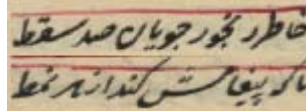 خاطر رنجور جویان صد سقط
تا که پیغامش کند از هر نمط